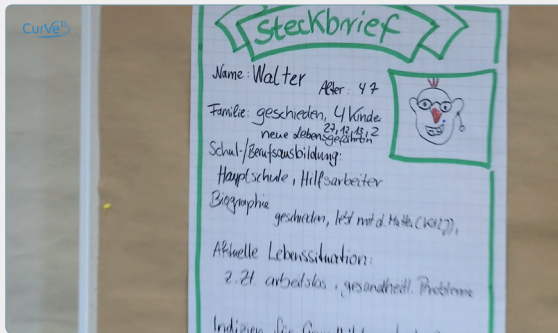 CurVe
Steckbrief
Name: Walter
Alter: 47
Familie: geschieden, 4 Kinder
27, 12, 13, 2
neue Lebensgefährtin
Schul-/Berufsausbildung:
Hauptschule, Hilfsarbeiter
Biographie
geschieden, lebt mit d.
Aktuelle Lebenssituation:
z.Zt. arbeitslos, gesundheitl. Probleme
Indizien für